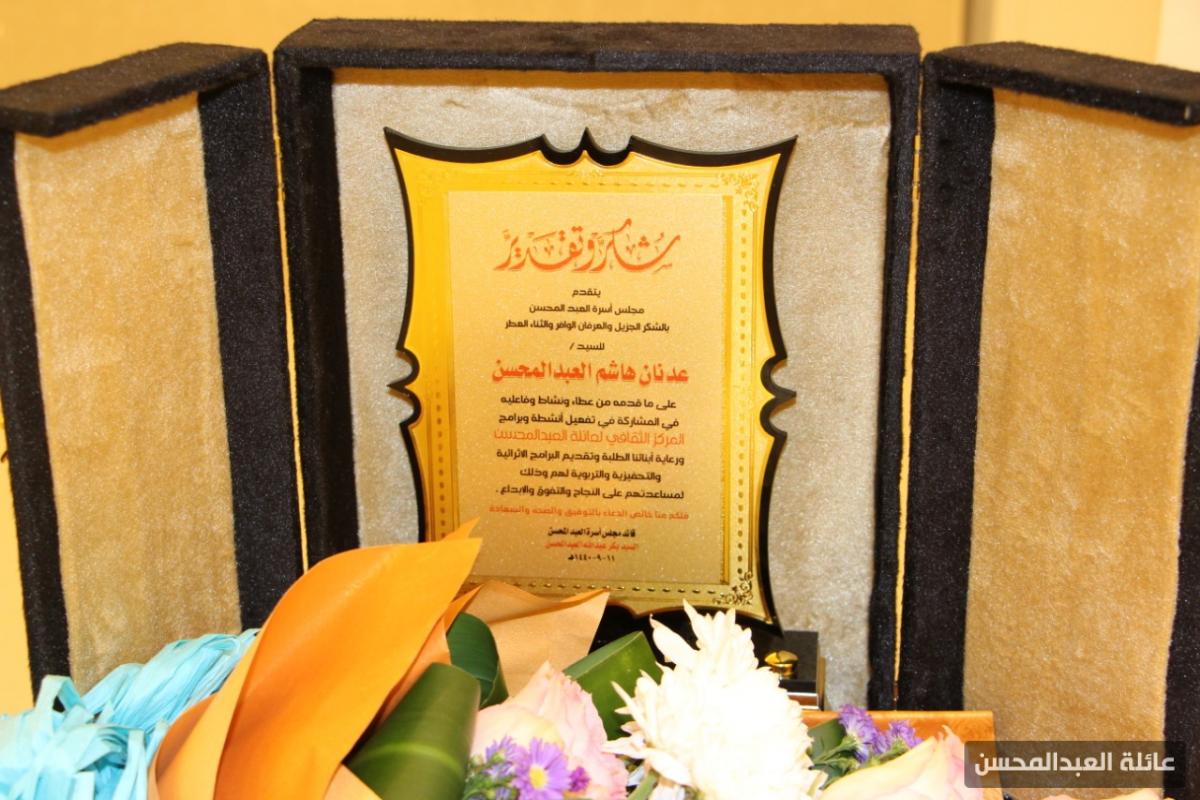 شكر وتقدير
يتقدم
مجلس أسرة العبد المحسن
بالشكر الجزيل والعرفان الوافر والثناء العطر
للسيد /
عدنان هاشم العبدالمحسن
على ما قدمه من عطاء ونشاط وفاعليه
في المشاركة في تفعيل أنشطة وبرامج
المركز الثقافي لعائلة العبدالمحسن
ورعاية أبنائنا الطلبة وتقديم البرامج الاثرائية
والتحفيزية والتربوية لهم وذلك
لمساعدتهم على النجاح والتفوق والابداع .
فلكم منا خالص الدعاء بالتوفيق والصحة والسعادة
قائد مجلس أسرة العبد المحسن
السيد بكر عبدالله العبدالمحسن
١١-٩-١٤٤٠هـ
عائلة العبدالمحسن